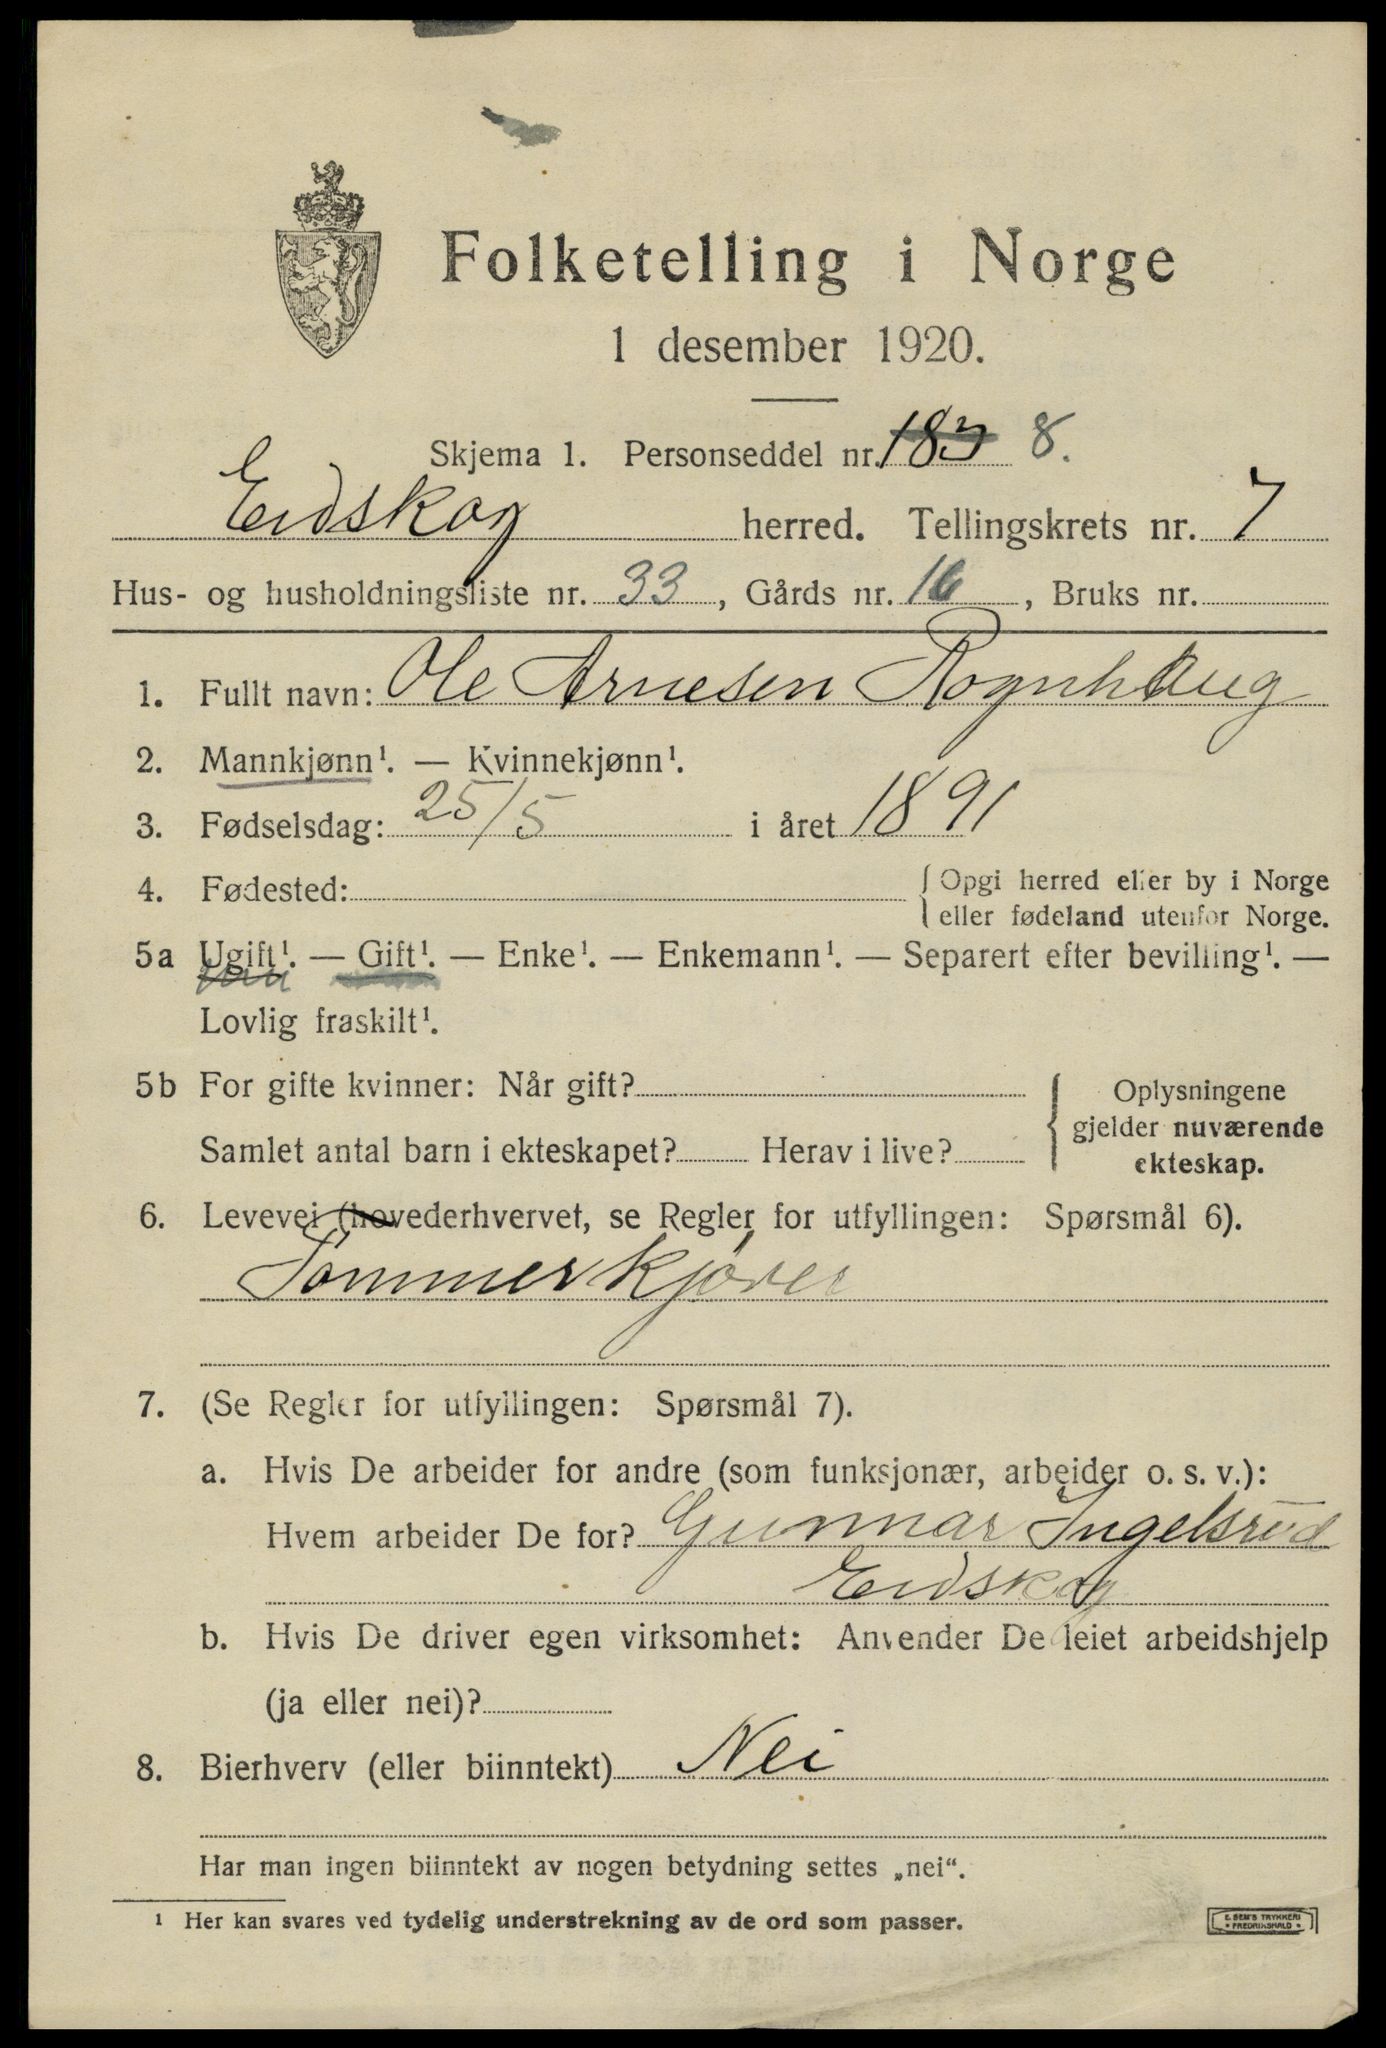 Folketelling i Norge
1 desember 1920.
Skjema 1. Personseddel nr. 183 8.
Eidskog herred. Tellingskrets nr. 7
Hus- og husholdningsliste nr. 33, Gårds nr. 16, Bruks nr.
1. Fullt navn: Ole Arnesen Rognhaug
2. Mannkjønn¹. — Kvinnekjønn¹.
3. Fødselsdag: 25/5 i året 1891
4. Fødested: { Opgi herred eller by i Norge
eller fødeland utenfor Norge.
5a Ugift¹. — Gift¹. — Enke¹. — Enkemann¹. — Separert efter bevilling¹. —
Lovlig fraskilt¹.
5b For gifte kvinner: Når gift? { Oplysningene
gjelder nuværende
Samlet antal barn i ekteskapet? Herav i live? ekteskap.
6. Levevei (hovederhvervet, se Regler for utfyllingen: Spørsmål 6).
Tømmerkjører
7. (Se Regler for utfyllingen: Spørsmål 7).
a. Hvis De arbeider for andre (som funksjonær, arbeider o. s. v.):
Hvem arbeider De for? Gunnar Ingelsrud
Eidskog
b. Hvis De driver egen virksomhet: Anvender De leiet arbeidshjelp
(ja eller nei)?
8. Bierhverv (eller biinntekt) Nei
Har man ingen biinntekt av nogen betydning settes „nei“.
¹ Her kan svares ved tydelig understrekning av de ord som passer.
E. SEM'S TRYKKERI
FREDRIKSHALD